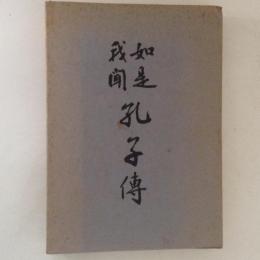 如是
我聞
孔子傳